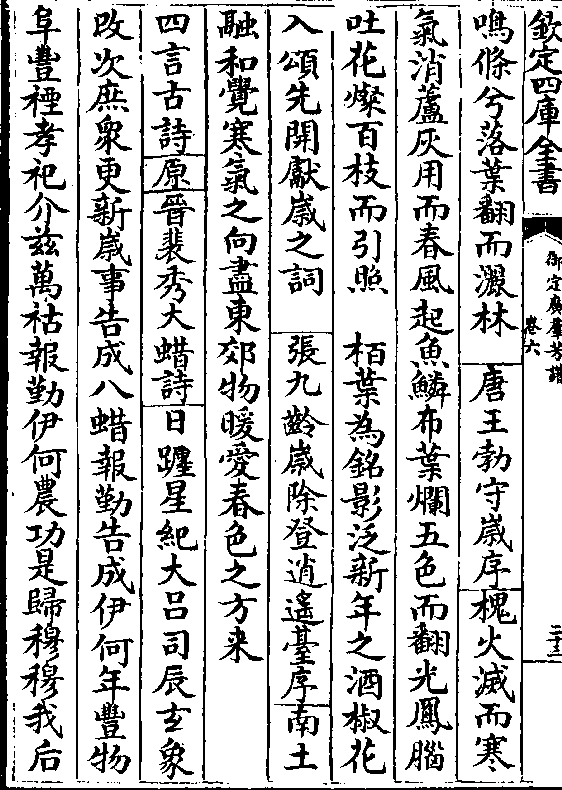 欽定四庫全書
御定廣羣芳譜
卷六
二十三
鳴條兮落葉翻而灑林 唐王勃守歲序槐火滅而寒
氣消蘆灰用而春風起魚鱗布葉爛五色而翻光鳳腦
吐花燦百枝而引照 栢葉為銘影泛新年之酒椒花
入頌先開獻歲之詞 張九齡歲除登逍遙臺序南土
融和覺寒氣之向盡東郊物暖愛春色之方来
四言古詩原晉裴秀大蜡詩日躔星紀大吕司辰玄象
改次庶衆更新歲事告成八蜡報勤告成伊何年豐物
阜豐禋孝祀介兹萬祜報勤伊何農功是歸穆穆我后